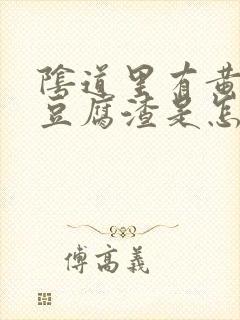 陰道里有黄
豆腐渣是怎
傅高義